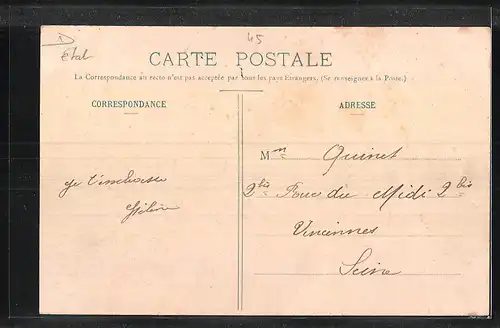 45
état
CARTE POSTALE
La Correspondance au recto n'est pas acceptée par tous les pays Etrangers. (Se renseigner à la Poste.)
CORRESPONDANCE
ADRESSE
Mme Quinet
Je t'embrasse
2 bis Rue du Midi 2 bis
Vincennes
Seine